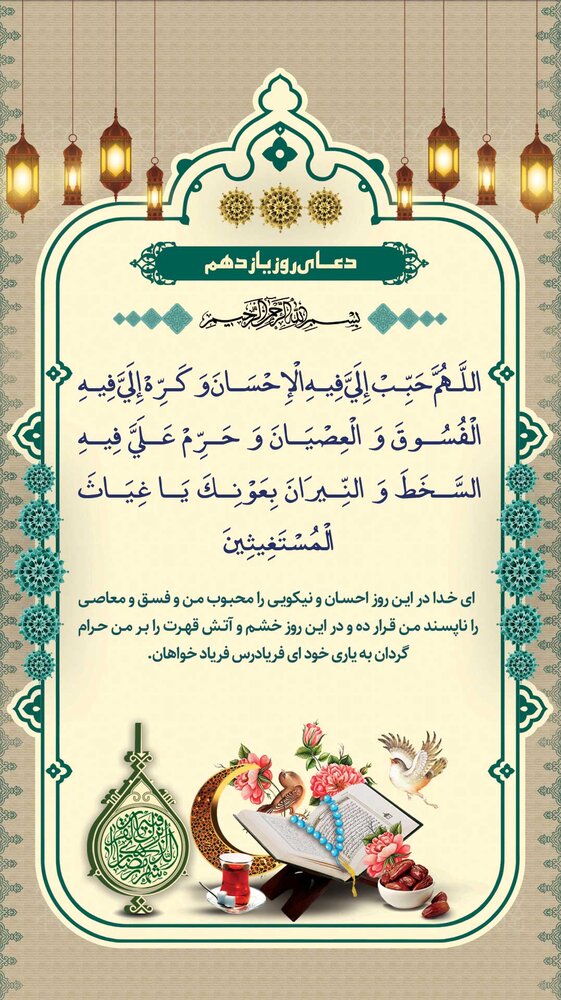 دعـای روز یازدهم
بِسْمِ اللهِ الرَّحْمنِ الرَّحیمِ
اللَّهُمَّ حَبِّبْ إِلَيَّ فِيهِ الْإِحْسَانَ وَ كَرِّهْ إِلَيَّ فِيهِ
الْفُسُوقَ وَ الْعِصْيَانَ وَ حَرِّمْ عَلَيَّ فِيهِ
السَّخَطَ وَ النِّيرَانَ بِعَوْنِكَ يَا غِيَاثَ
الْمُسْتَغِيثِينَ
ای خدا در این روز احسان و نیکویی را محبوب من و فسق و معاصی
را ناپسند من قرار ده و در این روز خشم و آتش قهرت را بر من حرام
گردان به یاری خود ای فریادرس فریاد خواهان.